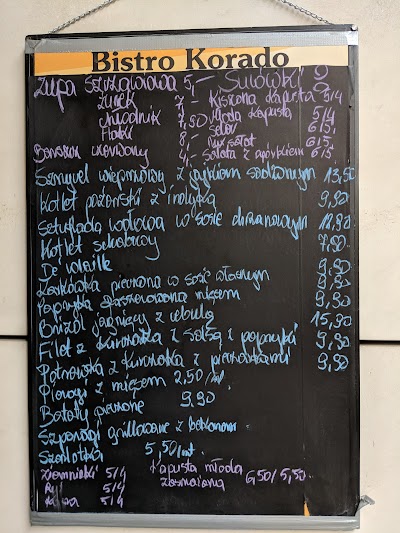 Bistro Korado
Zupa Szczawiowa 5,- Surówki
Żurek 7,- Kiszona kapusta 5/4
Chłodnik 7,50 Młoda kapusta 5/4
Flaki 8,- Seler 6/5,
Mix sałat 6/5
Barszcz ukraiński Sałata z ogórkiem 6/5
Sznycel wieprzowy z jajkiem sadzonym 13,50
Kotlet pożarski z indyka 9,90
Sztufada wołowa w sosie chrzanowym 12,80
Kotlet schabowy 7,80
De volaille 9,90
Karkówka pieczona w sosie własnym 9,90
Papryka faszerowana mięsem 9,90
Bryzol jagnięcy z cebulą 15,90
Filet z kurczaka z salsą z papryki 9,90
Potrawka z kurczaka z pieczarkami 9,90
Pierogi z mięsem 2,50/szt.
Bataty pieczone 9,90
Szparagi grillowane z bekonem =
Szarlotka 5,50/szt.
Ziemniaki 5/4 Kapusta młoda
Ryż 5/4 zasmażana 6,50/5,50
Kasza 5/4